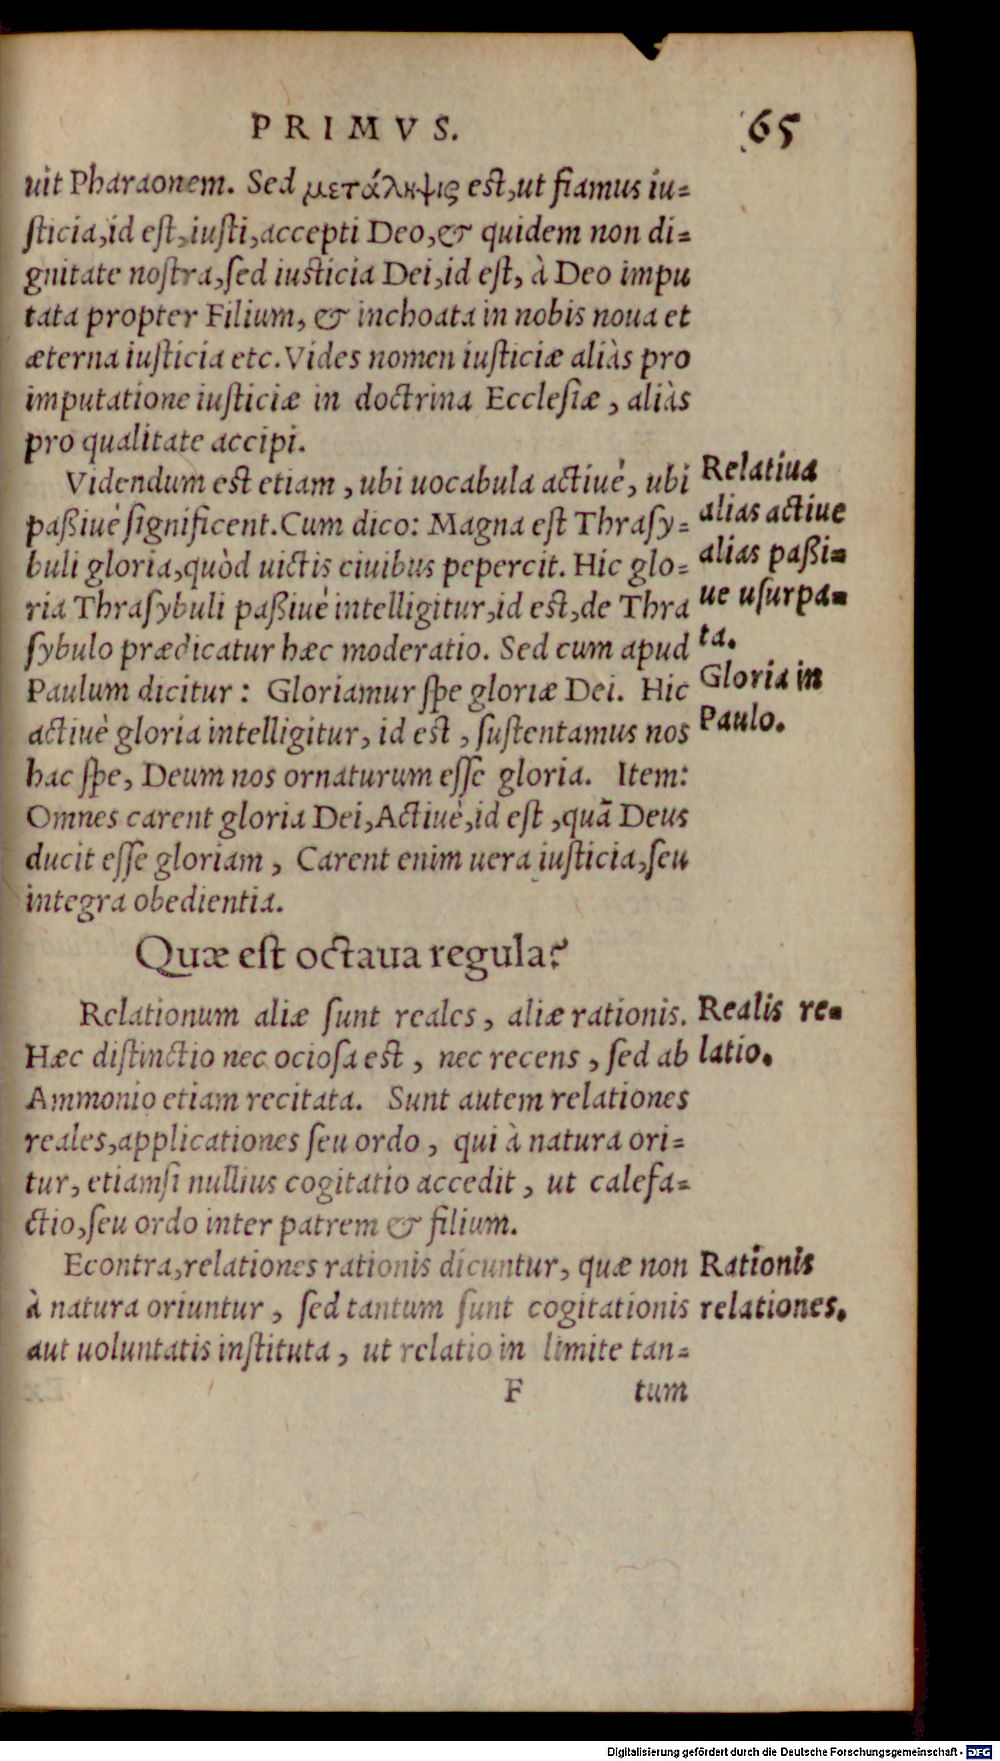 PRIMVS. 65
uit Pharaonem. Sed μετάληψις est, ut fiamus iu=
sticia, id est, iusti, accepti Deo, & quidem non di=
gnitate nostra, sed iusticia Dei, id est, à Deo impu
tata propter Filium, & inchoata in nobis noua et
æterna iusticia etc. Vides nomen iusticiæ aliàs pro
imputatione iusticiæ in doctrina Ecclesiæ, aliàs
pro qualitate accipi.
Videndum est etiam, ubi uocabula actiuè, ubi
paßiuè significent. Cum dico: Magna est Thrasy=
buli gloria, quòd uictis ciuibus pepercit. Hic glo=
ria Thrasybuli paßiuè intelligitur, id est, de Thra
sybulo prædicatur hæc moderatio. Sed cum apud
Paulum dicitur: Gloriamur spe gloriæ Dei. Hic
actiuè gloria intelligitur, id est, sustentamus nos
hac spe, Deum nos ornaturum esse gloria. Item:
Omnes carent gloria Dei, Actiuè, id est, quã Deus
ducit esse gloriam, Carent enim uera iusticia, seu
integra obedientia.
Relatiua
alias actiue
alias paßi=
ue usurpa=
ta.
Gloria in
Paulo.
Quæ est octaua regula?
Relationum aliæ sunt reales, aliæ rationis.
Hæc distinctio nec ociosa est, nec recens, sed ab
Ammonio etiam recitata. Sunt autem relationes
reales, applicationes seu ordo, qui à natura ori=
tur, etiamsi nullius cogitatio accedit, ut calefa=
ctio, seu ordo inter patrem & filium.
Realis re=
latio.
Econtra, relationes rationis dicuntur, quæ non
à natura oriuntur, sed tantum sunt cogitationis
aut uoluntatis instituta, ut relatio in limite tan=
Rationis
relationes.
F tum
Digitalisierung gefördert durch die Deutsche Forschungsgemeinschaft - DFG